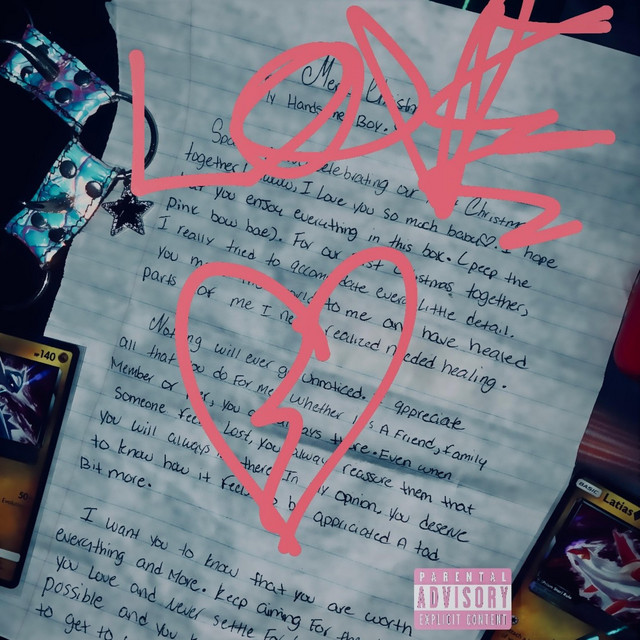 LOVE
Christm
Handsome Boy.
celebrating our Christmas
together! I love you so much babe♡. I hope
that you enjoy everything in this box. (peep the
pink bow bae). For our Christmas together,
I really tried to accomodate every little detail.
you to me and have healed
parts of me I realized needed healing.
Nothing will ever go unnoticed. I appreciate
all that you do For me. Whether it's A Friend, Family
Member or you always there. Even when
someone Feels Lost, you always reassure them that
you will always there. In my opinion, you deserve
to know how it Feels to be appriciated A tad
Bit more.
I want you to know that you are worth
everything and More. Keep aiming For
you Love and Never settle For
possible and you
to get to
HP 140
50
BASIC
Latias
PARENTAL
ADVISORY
EXPLICIT CONTENT